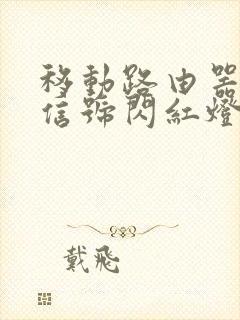 移動路由器
信號閃紅燈
戴飛